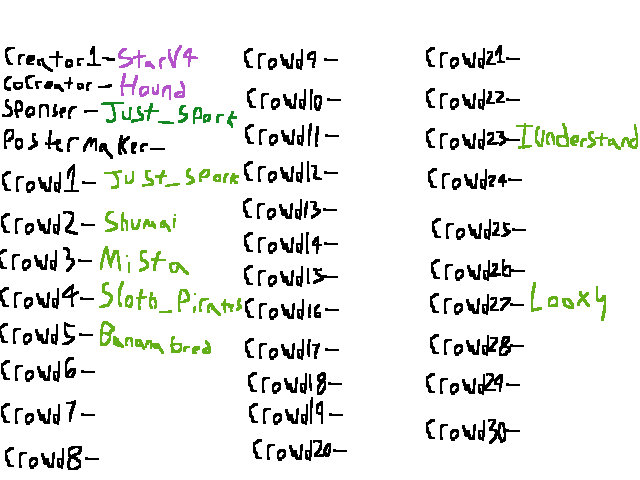 Creator1-StarV4
CoCreator-Hound
Sponser-Just_Spork
Poster maker-
Crowd1-Just_Spork
Crowd2-Shumai
Crowd3-Mista
Crowd4-Sloth_Pirates
Crowd5-Bananabred
Crowd6-
Crowd7-
Crowd8-
Crowd9-
Crowd10-
Crowd11-
Crowd12-
Crowd13-
Crowd14-
Crowd15-
Crowd16-
Crowd17-
Crowd18-
Crowd19-
Crowd20-
Crowd21-
Crowd22-
Crowd23-IUnderstand
Crowd24-
Crowd25-
Crowd26-
Crowd27-Looxy
Crowd28-
Crowd29-
Crowd30-